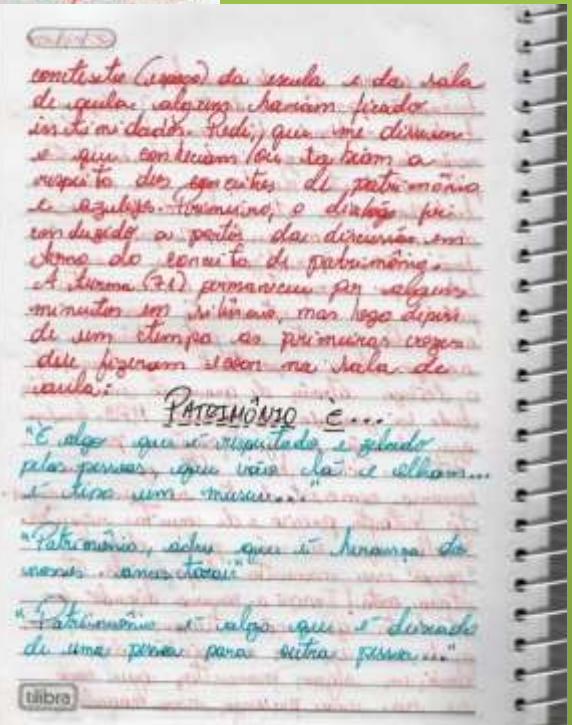 contexto (espaço) da escola e da sala
de aula alguns haviam ficado
intimidados. Pedi, que me dissessem
o que conheciam/ou sabiam a
respeito dos conceitos de patrimônio
e azulejos. Primeiro, o diálogo foi
conduzido a partir da discussão em
torno do conceito de patrimônio.
A turma (71) permaneceu por alguns
minutos em silêncio, mas logo depois
de um tempo as primeiras vozes
se fizeram na sala de
aula:
PATRIMÔNIO É...
"É algo que é respeitado e zelado
pelas pessoas, que vão lá e olham...
é tipo um museu..."
"Patrimônio, acho que é herança dos
nossos ancestrais"
"Patrimônio é algo que é deixado
de uma pessoa para outra pessoa..."
tilibra